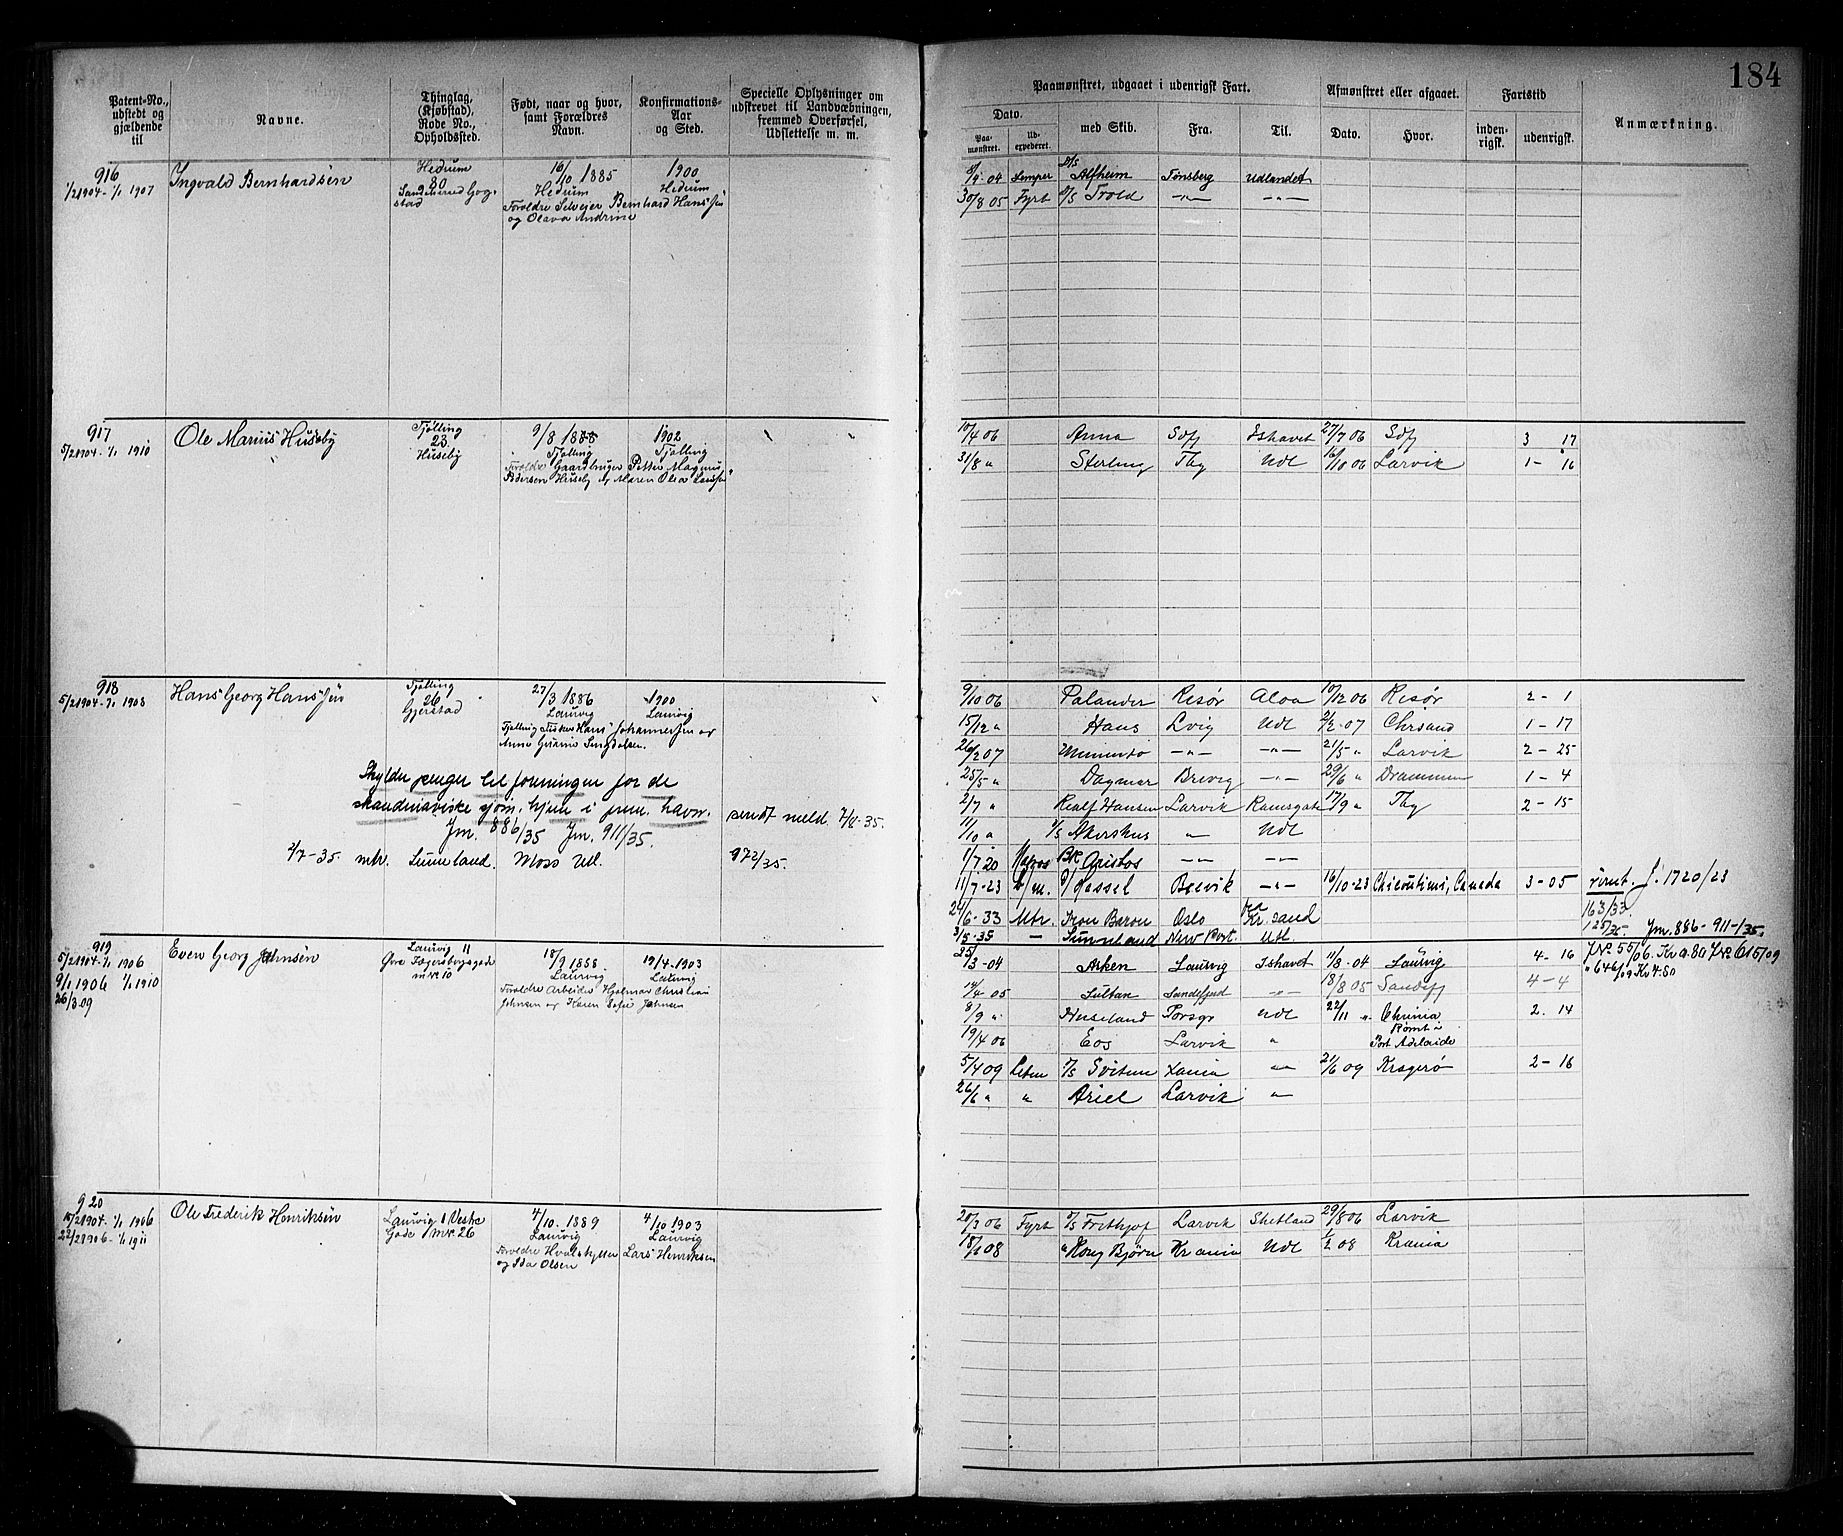 184
Patent-No., udstedt og gjældende til
Navne.
Thinglag, (Kjøbstad), Rode No., Opholdssted.
Født, naar og hvor, samt Forældres Navn.
Konfirmations-Aar og Sted.
Specielle Oplysninger om udskrevet til Landværnbningen, fremmed Overførsel, Udslettelse m. m.
Paamønstret, udgaaet i udenrigsk Fart.
Dato.
Paa-mønstret.
Ud-expederet.
med Skib.
Fra.
Til.
Afmønstret eller afgaaet.
Dato.
Hvor.
Fartstid
inden-rigsk.
udenrigsk.
Anmærkning.
916
1/2 1904 - 1/1 1907
Ingvald Bernhardsen
Hedrum
80
1885
Hedrum
Forældre Selveier Bernhard Hanssen
og Olava Andrine
1900
Hedrum
5/9 04 Lemper D/S Alfheim Tønsberg Udlandet
30/8 05 Fyrb D/S Trold -"- -"-
917
5/2 1904 - 1/1 1910
Ole Marius Huseby
Tjølling
23
Huseby
9/8 1888
Tjølling
Forældre Gaardbruger Petter Magnus
Pedersen Huseby og Maren Olea
1902
Tjølling
10/4 06 Anna Sdfj Ishavet 27/7 06 Sdfj 3 17
31/8 " Sterling Tbg Udl 16/10 06 Larvik 1 - 16
918
5/2 1904 - 1/1 1908
Hans Georg Hanssen
Tjølling
26
Gjerstad
27/3 1886
Laurvig
Tjølling Fisker Hans Johannessen og
Anne
1900
Laurvig
Skylder penger til foreningen for de
skandinaviske sjøm. hjem i frem. havn.
Jm. 886/35 Jm. 911/35.
sendt meld. 7/8-35.
2/7-35. mtr. Sunneland. Moss Utl. 972/35.
9/10 06 Palander Risør Aloa 10/12 06 Risør 2 - 1
15/12 " Hans Lvig Udl 2/2-07 Chrsand 1 - 17
26/2 07 -"- -"- 21/5 " Larvik 2 - 25
25/5 " Dagmar Brevig -"- 29/6 " Drammen 1 - 4
2/7 " Rialf Hansen Larvik Ramsgate 17/9 " Tbg 2 - 15
11/10 " D/S Akershus " Udl
1/7 20 Matros Bk Aristos -"- -"-
11/7-23 Brevik -"- 16/10-23 Chicoutimi, Canada 3 - 05 rømt. J. 1720/23
24/6-33 Mtr. Iron Baron Oslo Kr.sand 163/33.
3/5-35 - Sunneland New Port. Utl. 125/35. Jm. 886 - 911-/35.
919
5/2 1904 - 1/1 1906
9/1 1906 1/1 1910
26/3 09
Even Georg Johnsen
Laurvig 11
mk 10
18/9 1888
Laurvig
Forældre Arbeider Hjalmar Christian
Johnsen og Karen Sofie Johnsen
19/4-1903
Laurvig
25/3-04 Arken Laurvig Ishavet 11/8-04 Laurvig 4 - 16
14/4 05 Sultan Sandefjord -"- 18/8 05 Sandefj 4 - 4
8/9 " Huseland Porsgr Udl 22/11 " Chrinia 2 - 14
19/4 06 Eos Larvik " Rømt i
Port Adelaide
5/4 09 Letm D/S Svithun Xania -"- 21/6 09 Kragerø 2 - 16
26/6 " " Ariel Larvik -"-
920
1904 - 1/1 1906
22/2 1906 - 1/1 1911
Ole Frederik Henriksen
Laurvig 1 Vestre
Gade mk. 26
4/10. 1889
Laurvig
og Ida Olsen
4/10 1903
Laurvig
Lars Henriksen
20/3 06 Fyrb D/S Frithjof Larvik Shetland 29/8 06 Larvik
18/1 08 " Kong Bjørn Krania Udl 1/2 08 Krania